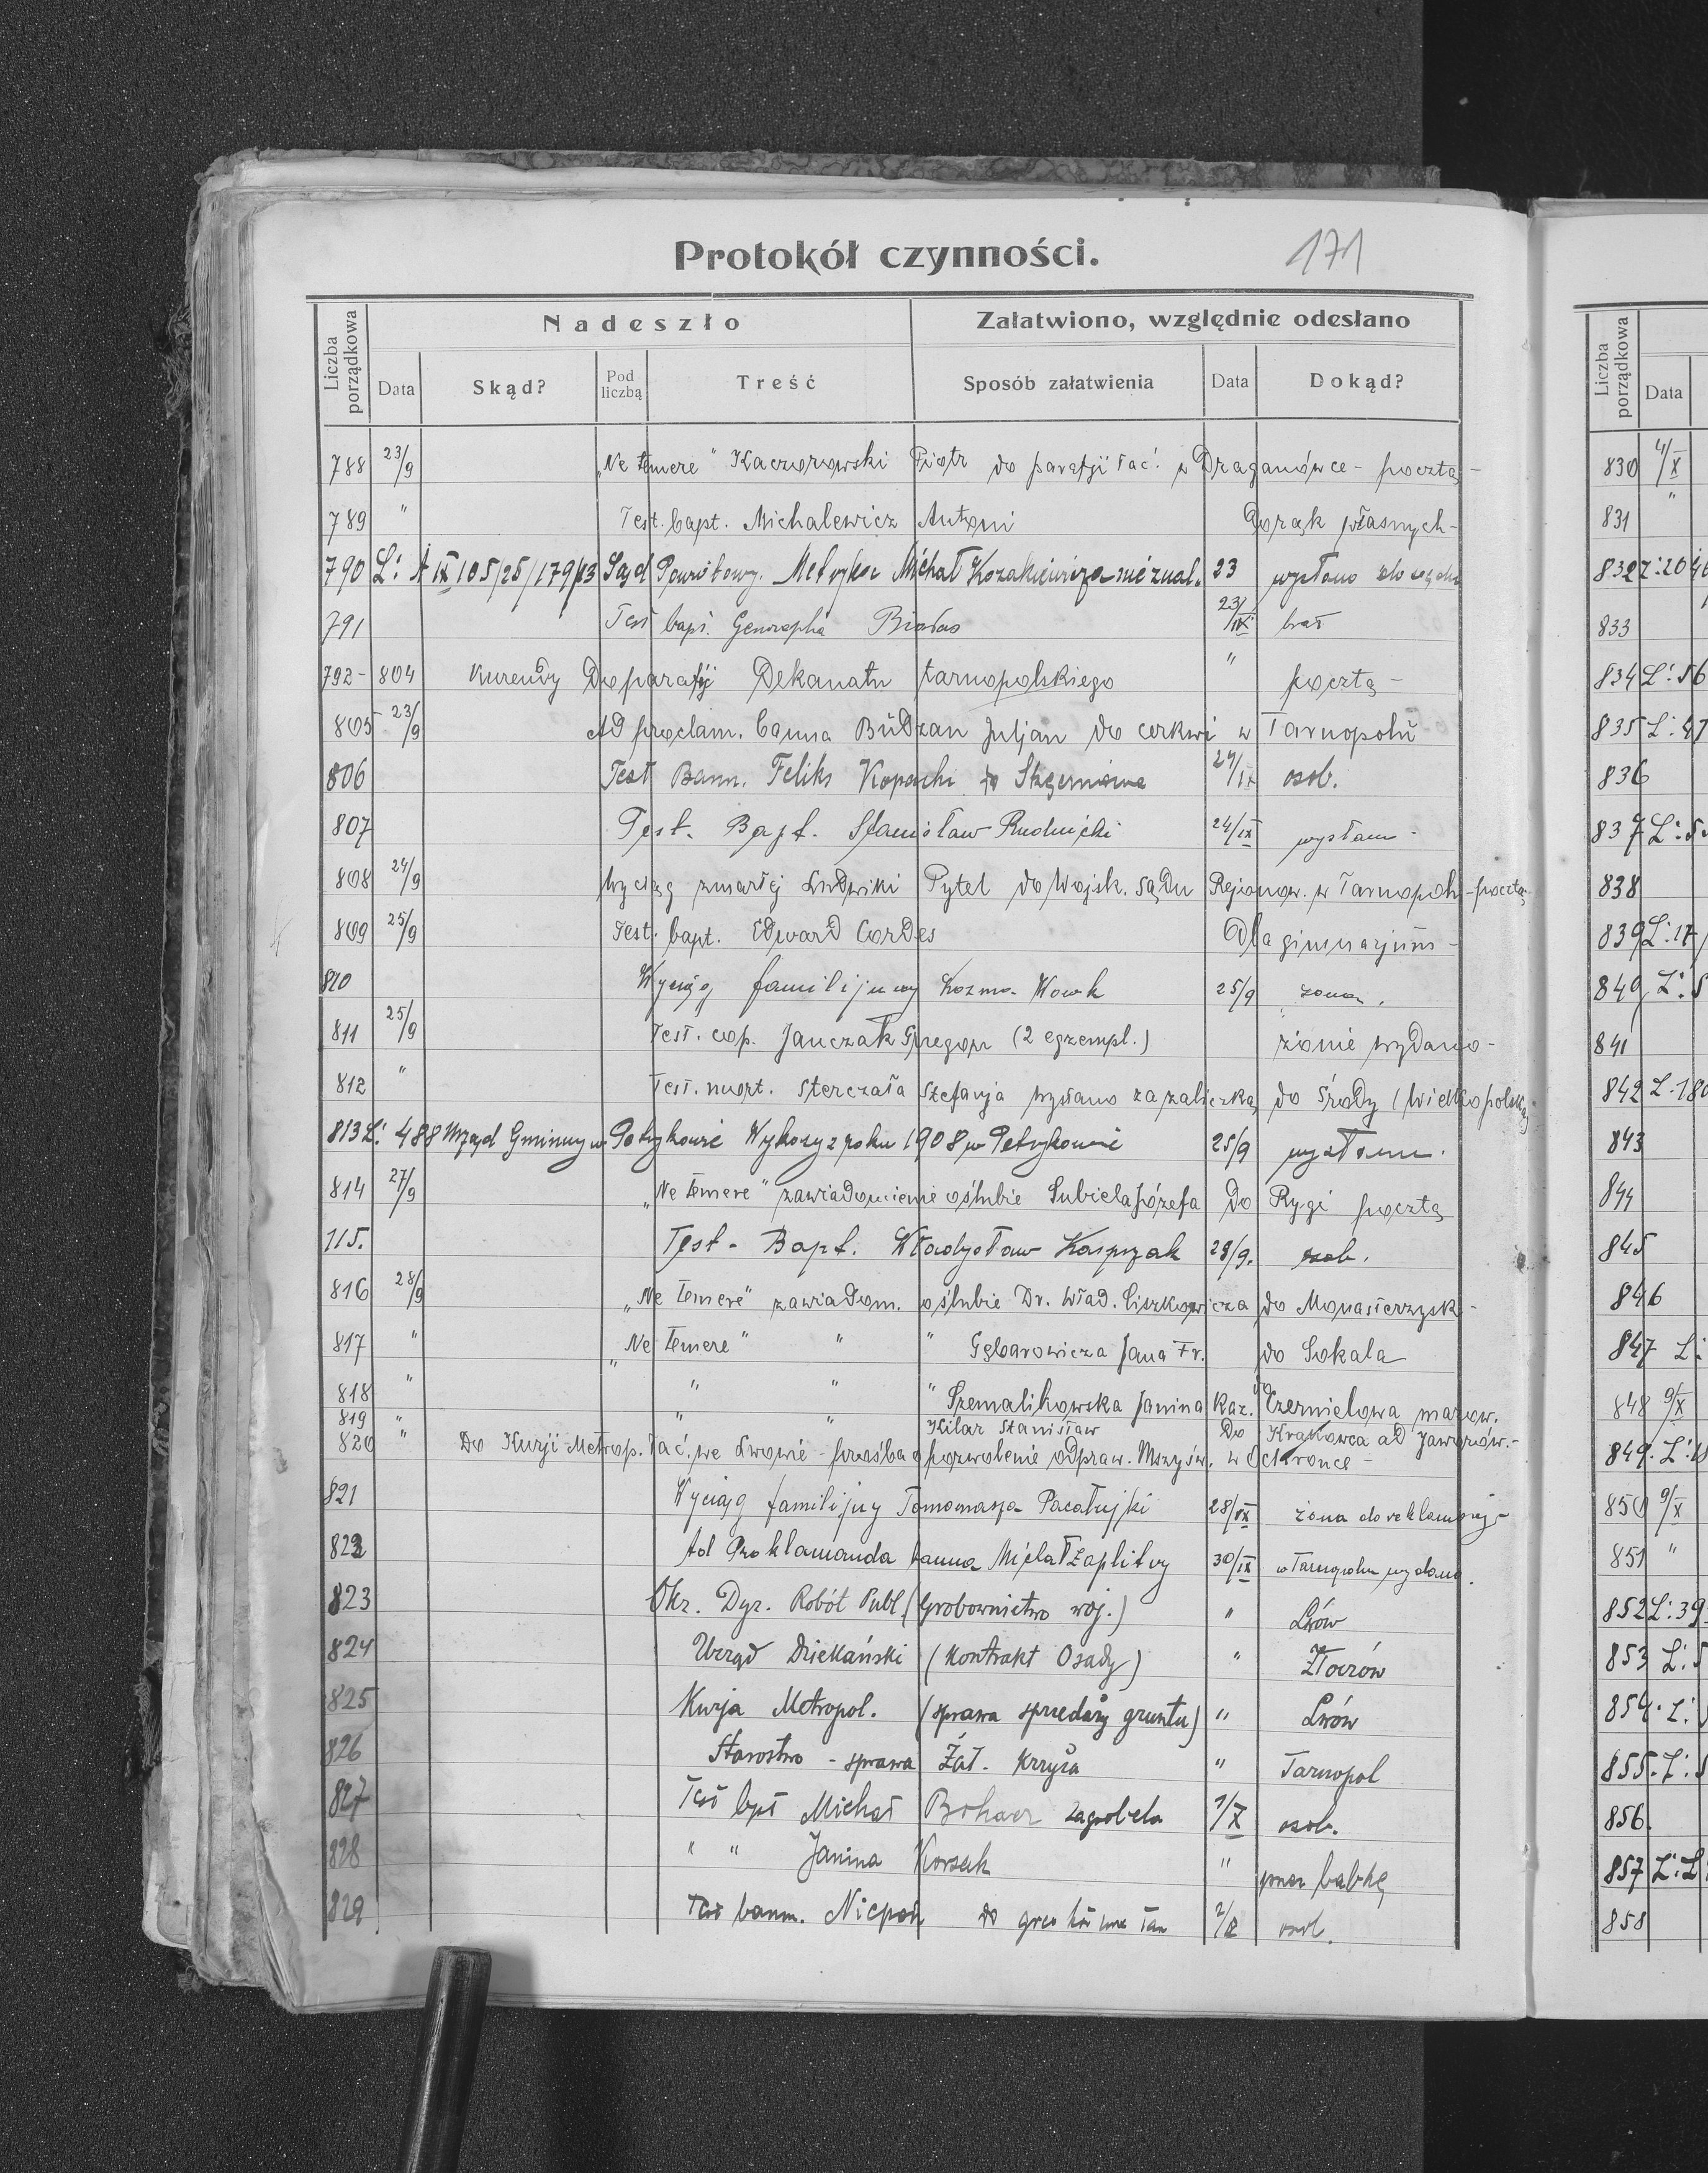 Protokół czynności. 171
Liczba porządkowa
Nadeszło
Załatwiono, względnie odesłano
Data Skąd? Pod liczbą Treść Sposób załatwienia Data Dokąd?
788 23/9 „Ne temere" Kaczorowski Piotr do parafji łać. w Draganówce - pocztą -
789 " Test. bapt. Michalewicz Antoni do rąk własnych -
790 L: A IX 105/25/179/13 Sąd Powiatowy. Metryka Michał Kozakiewicza nie znal. 23 wysłano do sądu
791 Test bapt. Genowepha Białas 23/IX brat
792 - 804 Kurendy Do parafij Dekanatu tarnopolskiego " pocztą -
805 23/9 Ad proclam. banna Budzan Juljan do cerkwi w Tarnopolu
806 Test Bann. Feliks do 24/IX osob.
807 Test. Bapt. Stanisław Rudnicki 24/IX wysłano -
808 24/9 Wyciąg zmarłej Ludwiki Pytel do Wojsk. Sądu Rejonow. w Tarnopolu - pocztą
809 25/9 Test. bapt. Edward Cordes Dla gimnazjum -
810 Wyciąg familijny Kozma Wowk 25/9 żona.
811 25/9 Test. cop. Janczak Gregor (2 egzempl.) żonie wydano -
812 " Test. mort. Sterczała Stefanja wysłano za zaliczką do Środy (Wielkopolska)
813 L: 488 Urząd Gminny w Petrykowie Wykazy z roku 1908 w Petrykowie 25/9 wysłano.
814 27/9 „Ne temere" zawiadomienie o ślubie Subiela Józefa do Rygi pocztą
115. Test - Bapt. Władysław Kasprzak 28/9. osob.
816 28/9 „Ne temere" zawiadom. o ślubie Dr. Wład. Ciszkowicza do Monasterzysk -
817 " „Ne temere" " " Gębarowicza Jana Fr. do Sokala
818 " " " " Szemalikowska Janina Kaz. do Czernielowa mazow.
819 " " " Kilar Stanisław Do Krakowca ad Jaworów. -
820 " Do Kurji Metrop. łać. we Lwowie - prośba o pozwolenie odpraw. Mszy św. w Ochronce -
821 Wyciąg familijny Tomomasza Pacałujki 28/IX żona do reklamacji -
822 Ad Proklamanda banna Michał Zaplitny 30/IX w Tarnopolu wydano.
823 Okr. Dyr. Robót Publ. (Grobownictwo woj.) " Lwów
824 Urząd Dziekański (Kontrakt Osady) " Złoczów
825 Kurja Metropol. (sprawa sprzedaży gruntu) " Lwów
826 Starostwo - sprawa Zał. Krzyża " Tarnopol
827 Test bpt Michał Bohacz Zagrobela 1/X osob.
828 " " Janina Korsak " przez babkę
829 Test bann. Niepoń do 2/X osob.
Liczba porządkowa Data
830 4/X
831 "
832
833
834 L: 56
835 L: 47
836
837 L: 5
838
839 L: 17
849 L: 5
841
842 L. 180
843
844
845
846
847 L:
848 9/X
849. L:
850 9/X
851 "
852 L: 39
853 L: 5
854. L:
855. L:
856.
857 L:
858